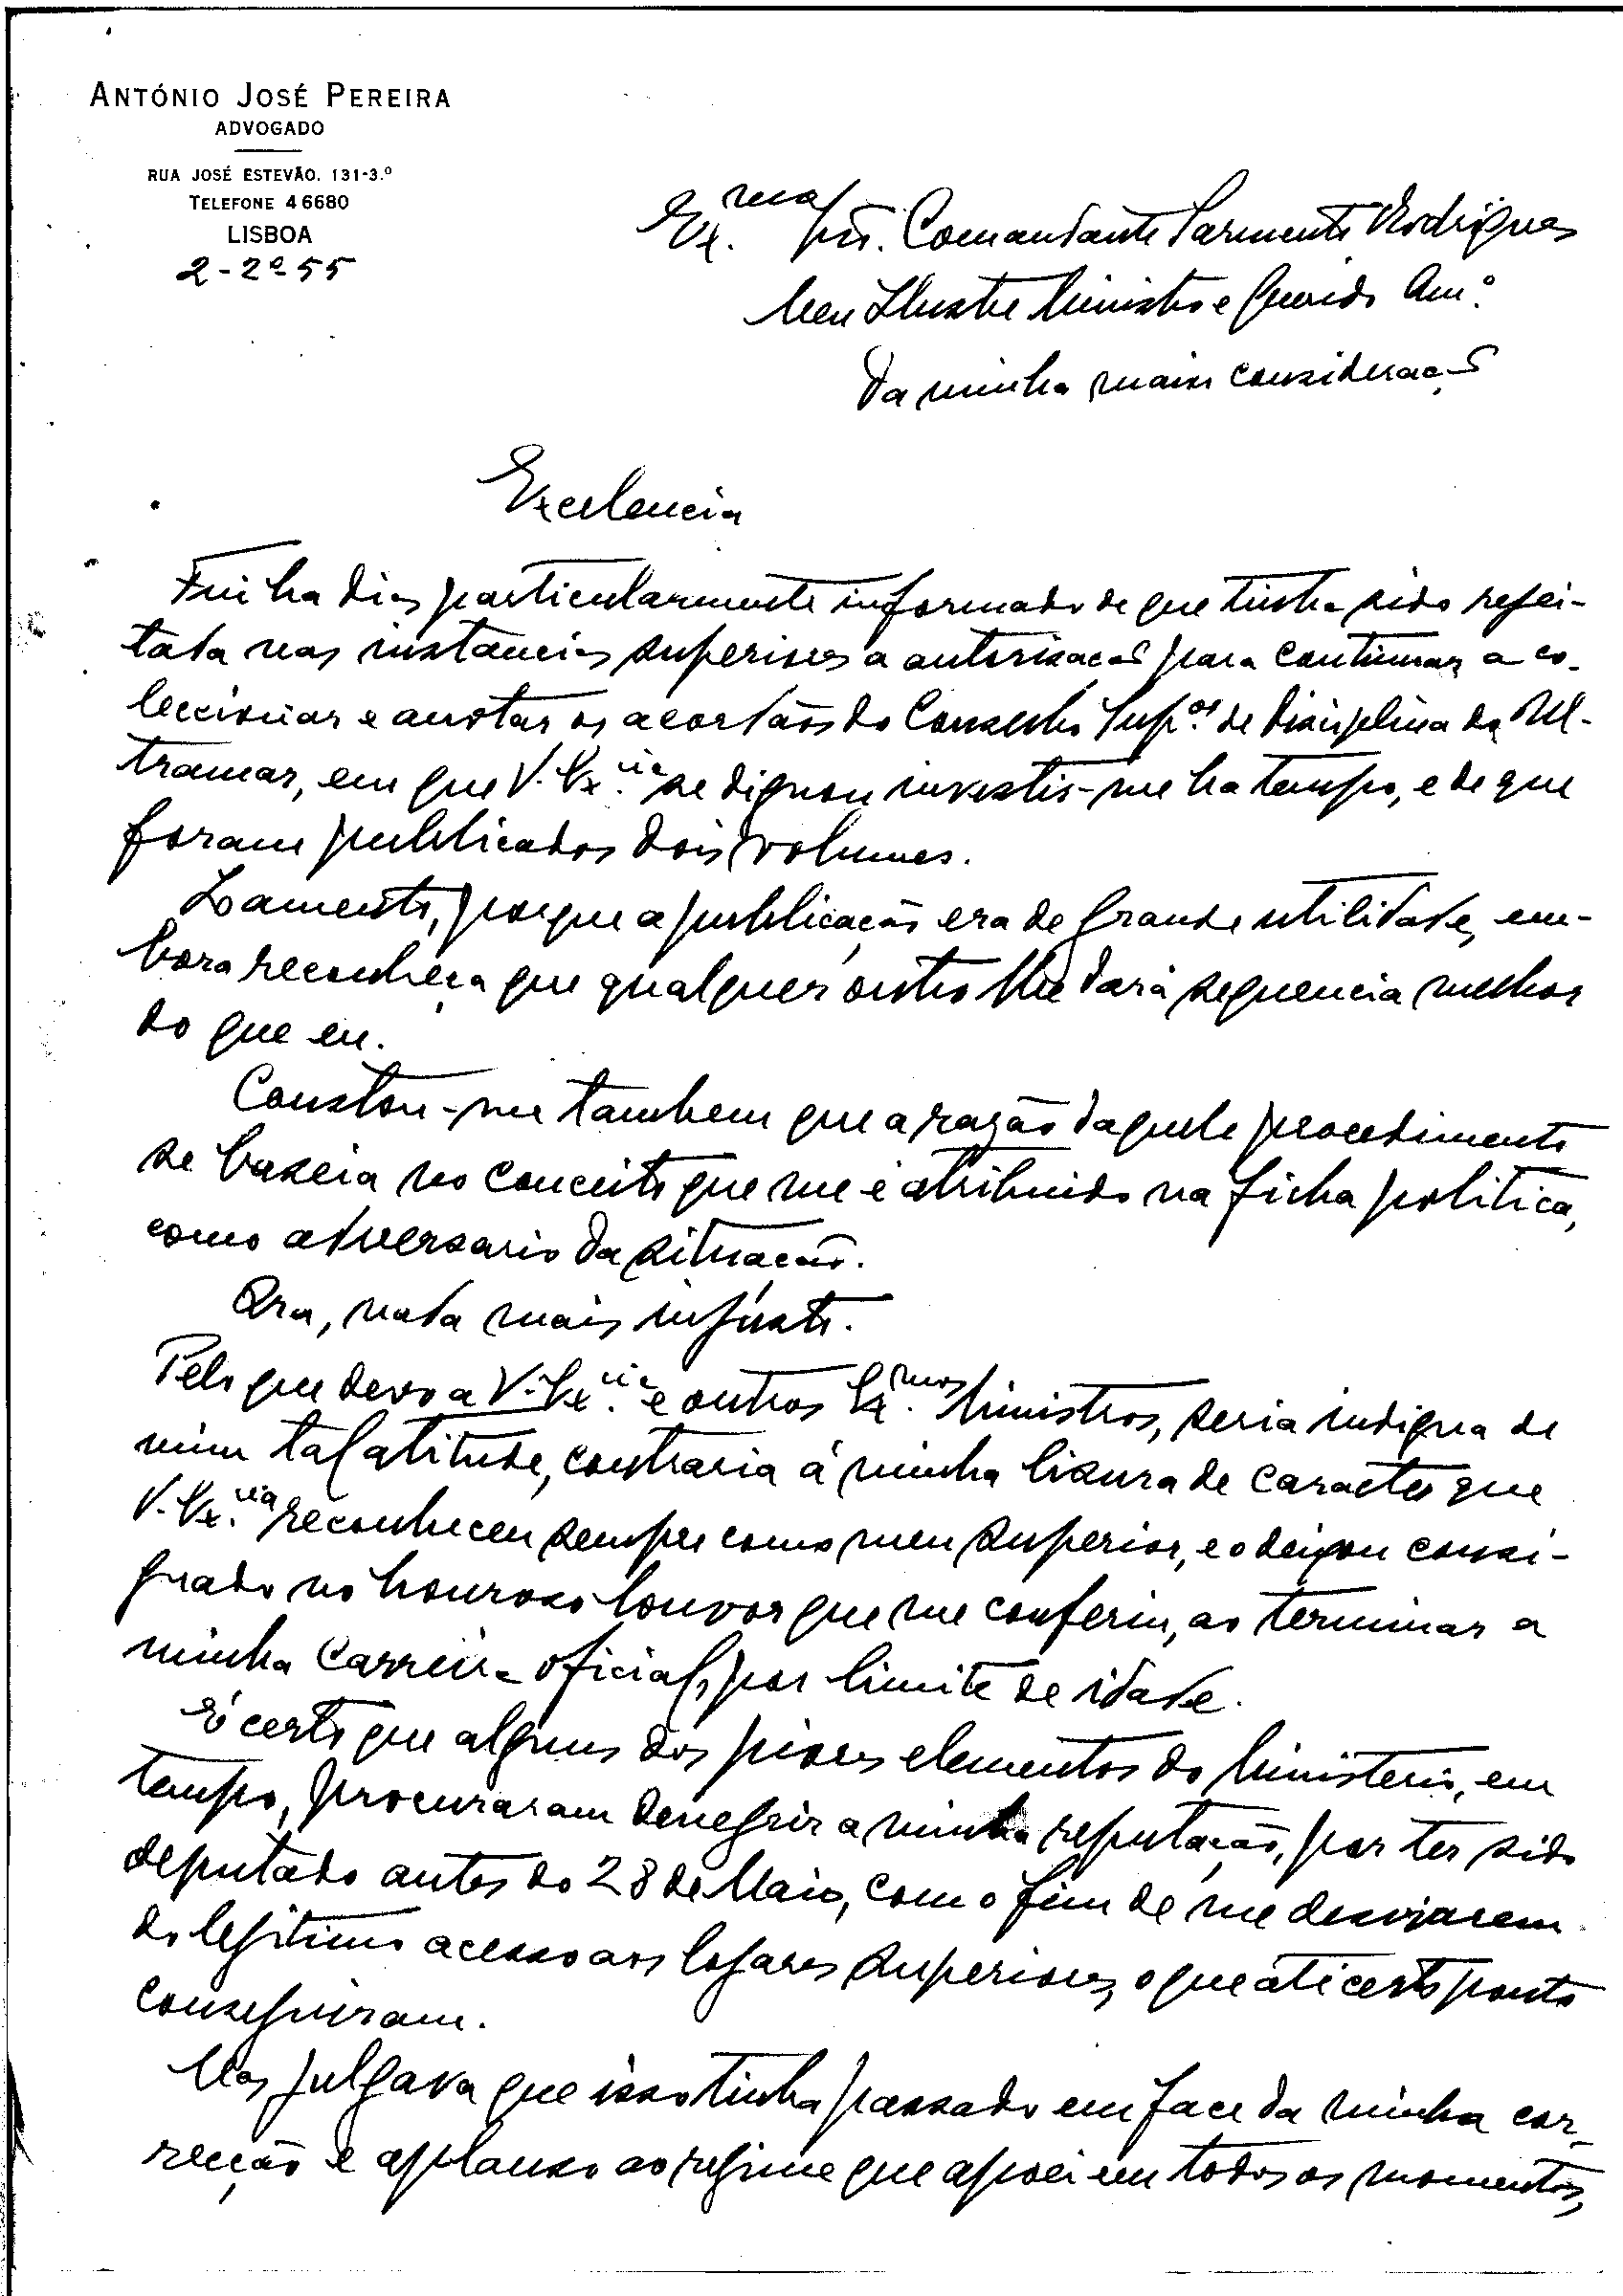 ANTÓNIO JOSÉ PEREIRA
ADVOGADO
RUA JOSÉ ESTEVÃO, 131-3.º
TELEFONE 46680
LISBOA
2-2º-55
Ex.mo Snr. Comandante Sarmento Rodrigues
Meu Ilustre Ministro e Querido Am.º
da minha maior consideração
Excelencia
Fui ha dias particularmente informado de que tinha sido rejei-
tada nas instancias superiores a autorisação para continuar a co-
leccionar e anotar os acordãos do Conselho Sup.or de Disciplina do Ul-
tramar, em que V. Ex.cia se dignou investir-me ha tempo, e de que
foram publicados dois volumes.
Lamento, porque a publicação era de grande utilidade, em-
bora reconheça que qualquer outro lhe dará sequencia melhor
do que eu.
Constou-me tambem que a razão daquele procedimento
se baseia no conceito que me é atribuido na ficha politica,
como adversario da situação.
Ora, nada mais injusto.
Pelo que devo a V. Ex.cia e outros Ex.mos Ministros, seria indigna de
mim tal atitude, contraria á minha lisura de caracter que
V. Ex.cia reconheceu sempre como meu superior, e o deixou consi-
gnado no honroso louvor que me conferiu, ao terminar a
minha carreira oficial, por limite de idade.
É certo que alguns dos piores elementos do Ministerio, em
tempo, procuraram denegrir a minha reputação, por ter sido
deputado antes do 28 de Maio, com o fim de me desviarem
do legitimo acesso aos logares superiores, o que até certo ponto
conseguiram.
Mas julgava que isso tinha passado em face da minha cor-
recção e aplauso ao regime que apoiei em todos os momentos,